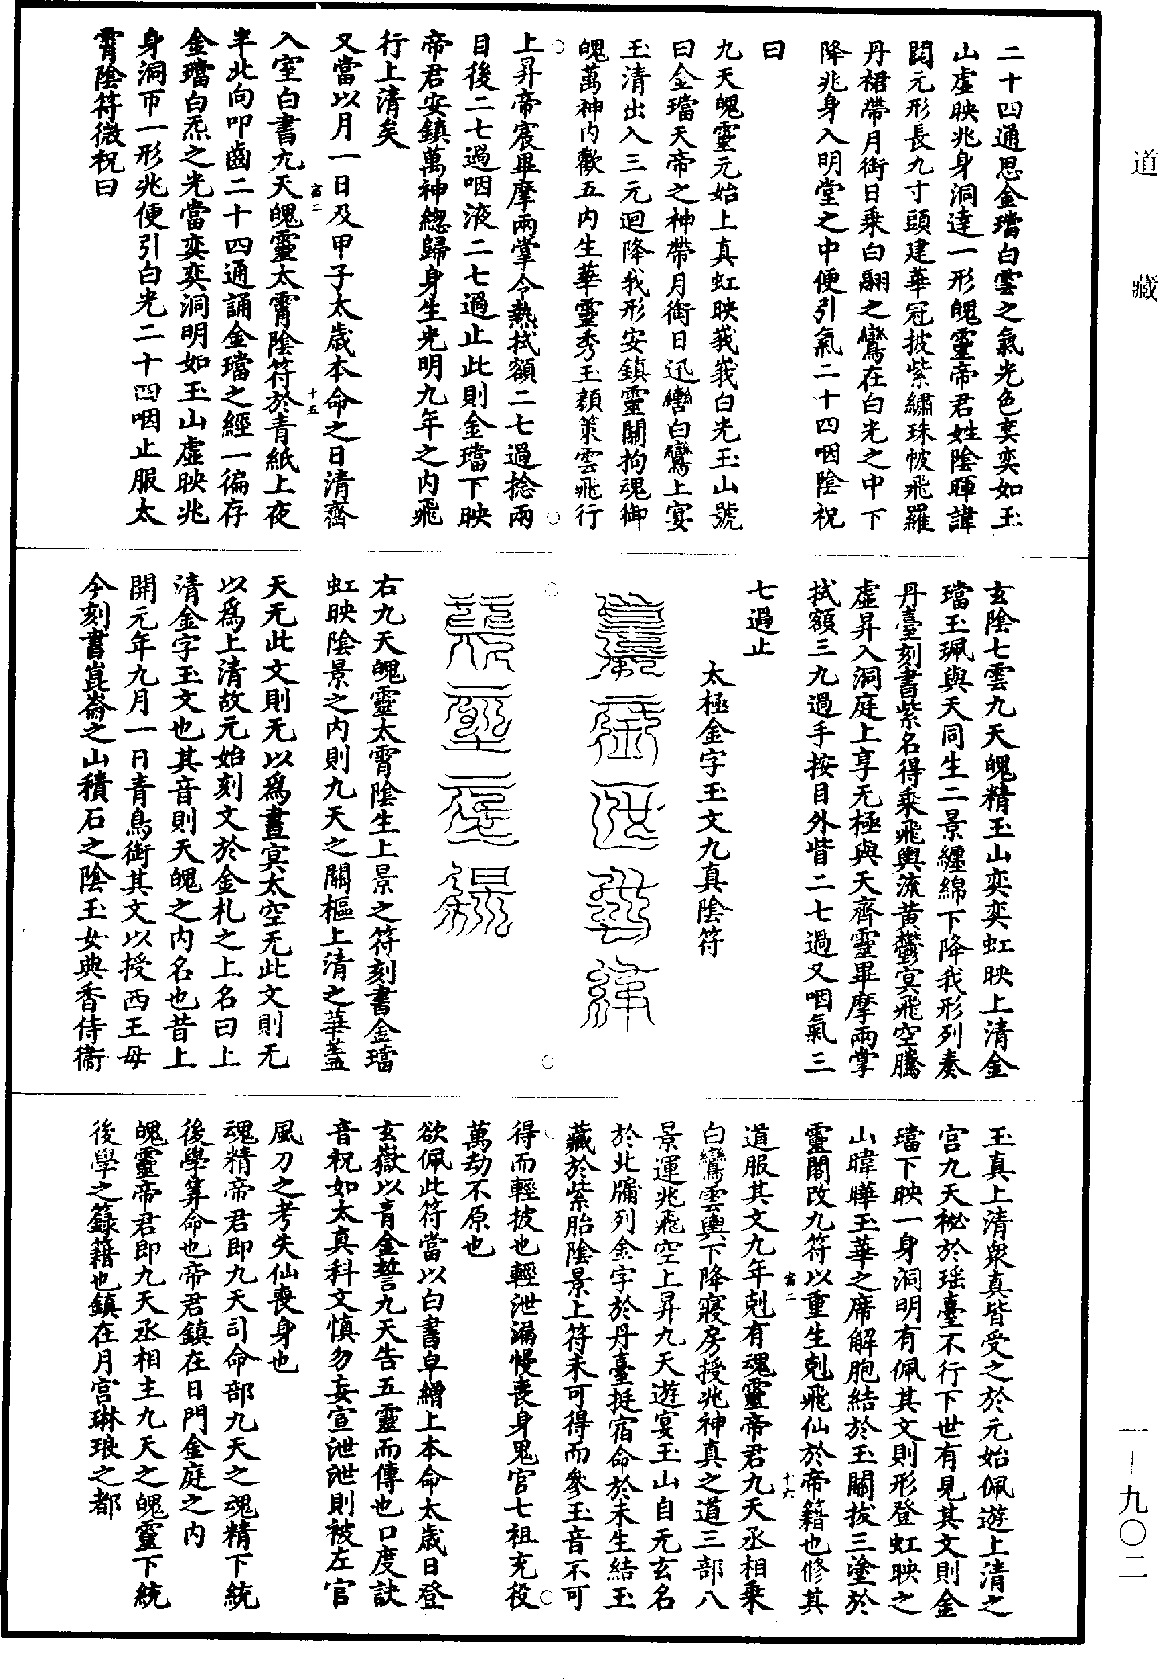 道藏
二十四通思金璫白雲之氣光色奕奕如玉
山虛映兆身洞達一形魄靈帝君姓陰暉諱
閎元形長九寸頭建華冠披紫繡珠帔飛羅
丹裙帶月銜日乘白翮之鸞在白光之中下
降兆身入明堂之中便引氣二十四咽陰祝
曰
九天魄靈元始上真虹映莪莪白光玉山號
曰金璫天帝之神帶月銜日迅轡白鸞上宴
玉清出入三元迴降我形安鎮靈關拘魂御
魄萬神內歡五內生華靈秀玉顏策雲飛行
上昇帝宸畢摩兩掌令熱拭額二七過捻兩
目後二七過咽液二七過止此則金璫下映
帝君安鎮萬神總歸身生光明九年之內飛
行上清矣
又當以月一日及甲子太歲本命之日清齋
入室白書九天魄靈太霄陰符於青紙上夜
半北向叩齒二十四通誦金璫之經一徧存
金璫白炁之光當奕奕洞明如玉山虛映兆
身洞帀一形兆便引白光二十四咽止服太
霄陰符微祝曰
玄陰七雲九天魄精玉山奕奕虹映上清金
璫玉珮與天同生二景纏綿下降我形列奏
丹臺刻書紫名得乘飛輿流黃鬱冥飛空騰
虛昇入洞庭上享无極與天齊靈畢摩兩掌
拭額三九過手按目外眥二七過又咽氣三
七過止
太極金字玉文九真陰符
右九天魄靈太霄陰生上景之符刻書金璫
虹映陰景之內則九天之關樞上清之華蓋
天无此文則无以爲晝冥太空无此文則无
以爲上清故元始刻文於金札之上名曰上
清金字玉文也其音則天魄之內名也昔上
開元年九月一日青鳥銜其文以授西王母
今刻書崑崙之山積石之陰玉女典香侍衛
玉真上清衆真皆受之於元始佩遊上清之
宮九天秘於瑶臺不行下世有見其文則金
璫下映一身洞明有佩其文則形登虹映之
山暐曄玉華之席解胞結於玉關拔三塗於
靈閣改九符以重生剋飛仙於帝籍也脩其
道服其文九年剋有魂靈帝君九天丞相乘
白鸞雲輿下降寢房授兆神真之道三部八
景運兆飛空上昇九天遊宴玉山自无玄名
於北牖列金字於丹臺挺宿命於未生結玉
藏於紫胎陰景上符未可得而參玉音不可
得而輕披也輕泄漏慢喪身鬼官七祖充役
萬劫不原也
欲佩此符當以白書皁繒上本命太歲日登
玄嶽以青金誓九天告五靈而傳也口度訣
音祝如太真科文慎勿妄宣泄泄則被左官
風刀之考失仙喪身也
魂精帝君即九天司命部九天之魂精下統
後學筭命也帝君鎮在日門金庭之內
魄靈帝君即九天丞相主九天之魄靈下統
後學之籙籍也鎮在月宮琳琅之都
一—九〇二